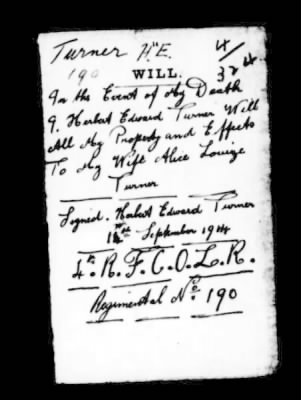 Turner H.E. 4/
190 WILL. 324
In the Event of My Death
I. Herbert Edward Turner Will
All My Property and Effects
To My Wife Alice Louize
Turner
Signed. Herbert Edward Turner
September 1914
4th. R. F. C. O. L. R.
Regimental No. 190